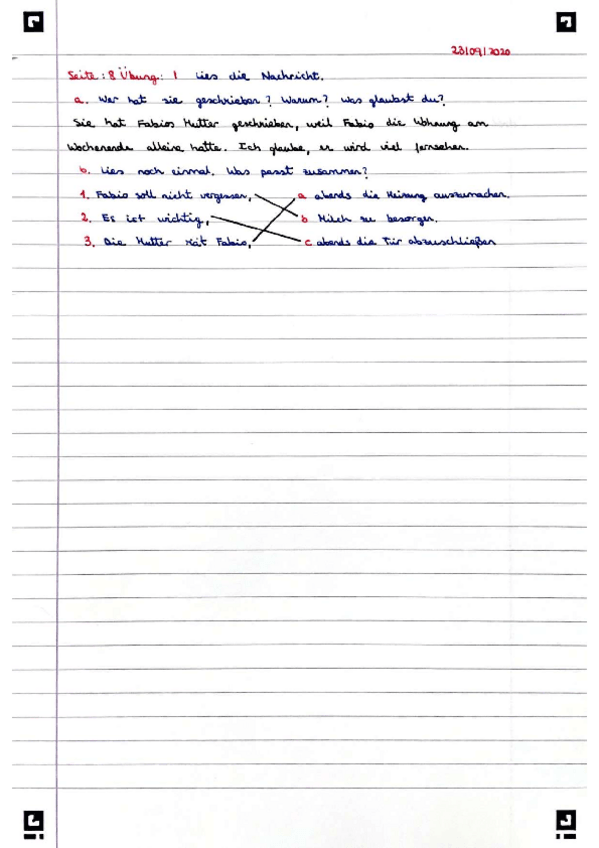 23/09/2020
Seite: 8 Übung: 1 Lies die Nachricht.
a. Wer hat sie geschrieben? Warum? Was glaubst du?
Sie hat Fabios Mutter geschrieben, weil Fabio die Wohnung am
Wochenende alleine hatte. Ich glaube, er wird viel fernsehen.
b. Lies noch einmal. Was passt zusammen?
1. Fabio soll nicht vergessen, a abends die Heizung auszumachen.
2. Es ist wichtig, b Milch zu besorgen.
3. Die Mutter rät Fabio, c abends die Tür abzuschließen